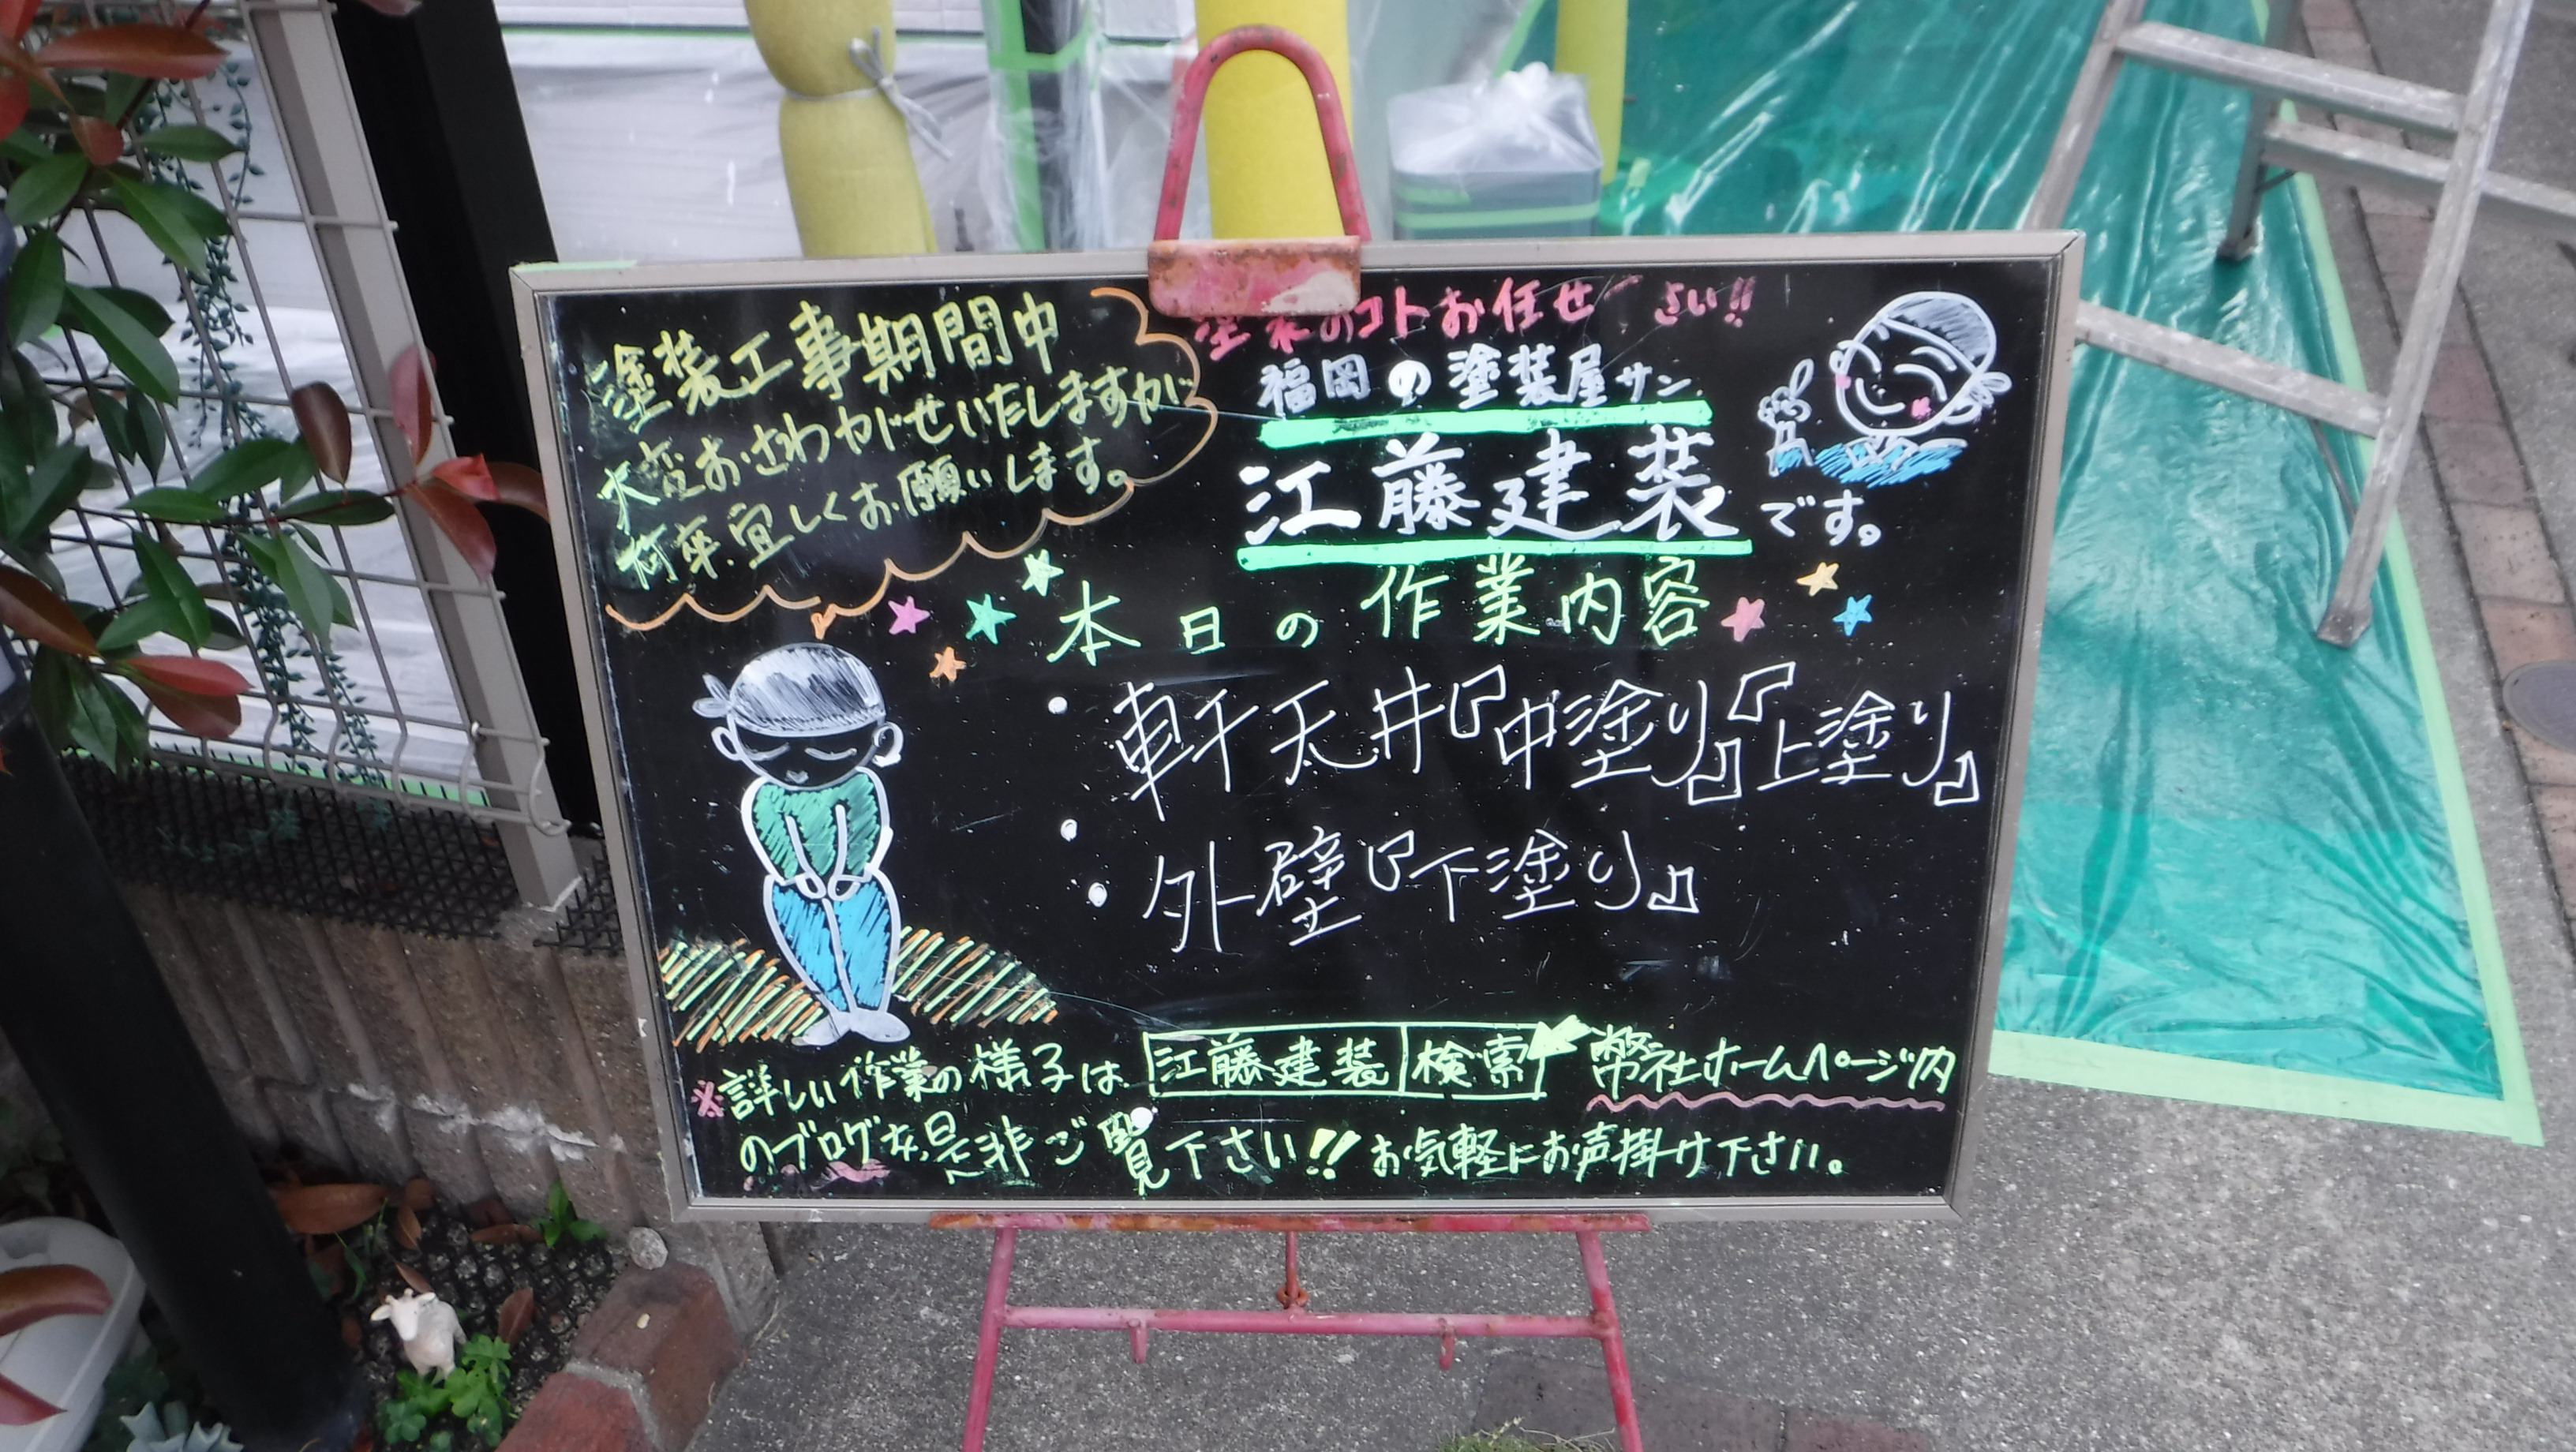 塗装工事期間中
大変おさわがせいたしますが
何卒宜しくお願いします。
塗装のコトお任せ さい!!
福岡の塗装屋サン
江藤建装です。
本日の作業内容
・軒天井『中塗り』『上塗り』
・外壁『下塗り』
※詳しい作業の様子は 江藤建装 検索 弊社ホームページ内
のブログを是非ご覧下さい!! お気軽にお声掛け下さい。